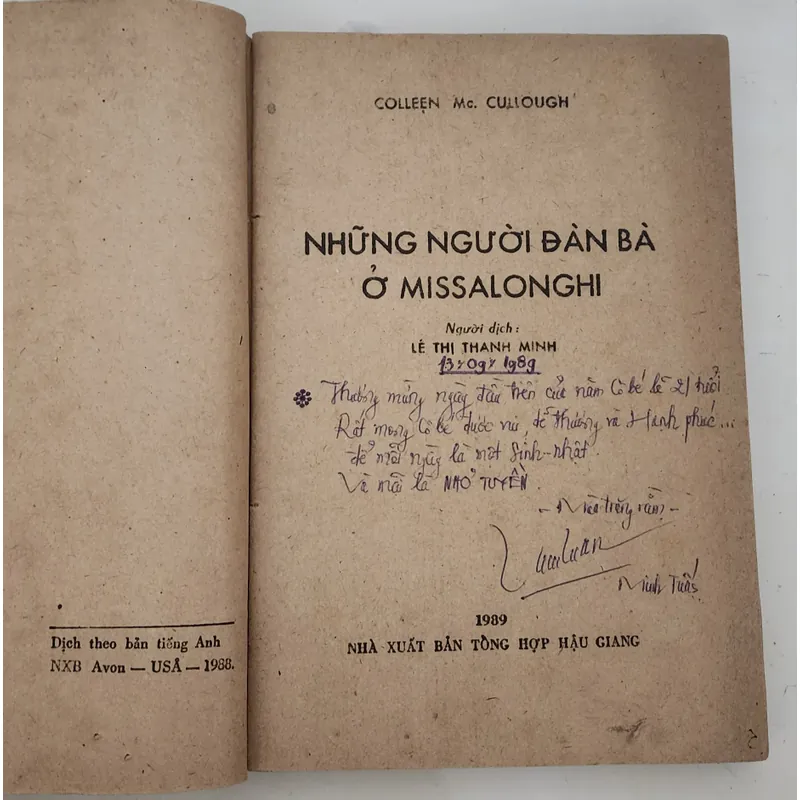 Dịch theo bản tiếng Anh
NXB Avon — USA — 1988.
COLLEEN Mc. CULLOUGH
NHỮNG NGƯỜI ĐÀN BÀ
Ở MISSALONGHI
Người dịch:
LÊ THỊ THANH MINH
13 09 1989
mừng ngày đầu tiên của năm Cô bé là 21 tuổi
Rất mong Cô bé được vui, dễ thương và Hạnh phúc...
để mỗi ngày là một Sinh-nhật.
Và mãi là NHỎ TUYỀN.
- Mùa trăng rằm -
Minh Tuấn
1989
NHÀ XUẤT BẢN TỔNG HỢP HẬU GIANG